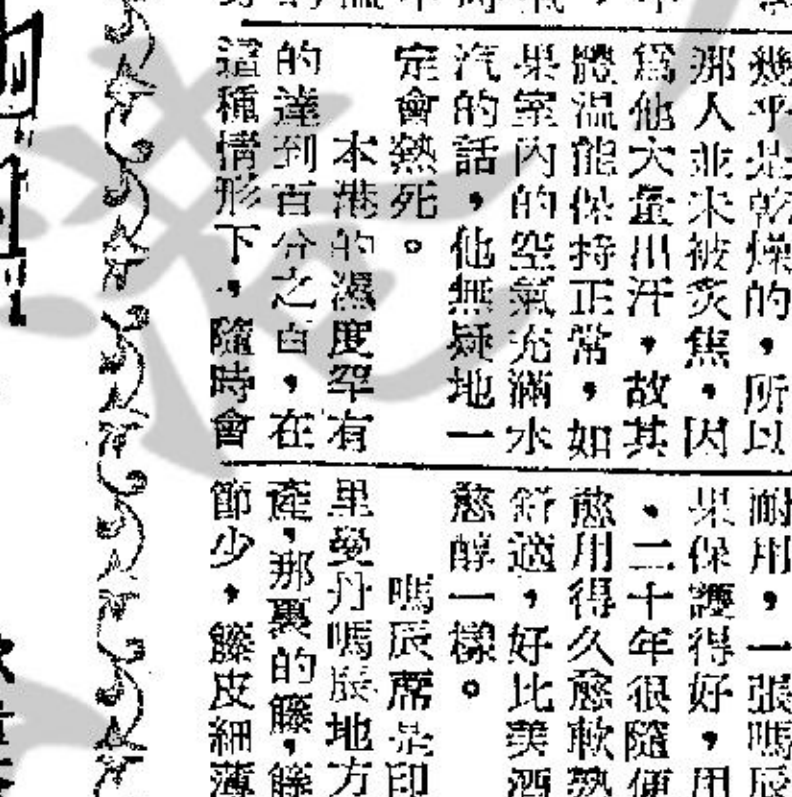 幾乎是乾燥的，所以
那人並未被炙焦，因
爲他大量出汗，故其
體温能保持正常，如
果室內的空氣充滿水
汽的話，他無疑地一
定會熱死。
本港的濕度罕有
的達到百分之百，在
這種情形下，隨時會
耐用，一張嗎辰
果保護得好，用
、二十年很隨便
愈用得久愈軟熟
舒適，好比美酒
愈醇一樣。
嗎辰蓆是印
里曼丹嗎辰地方
產，那裏的籐，籐
節少，籐皮細薄